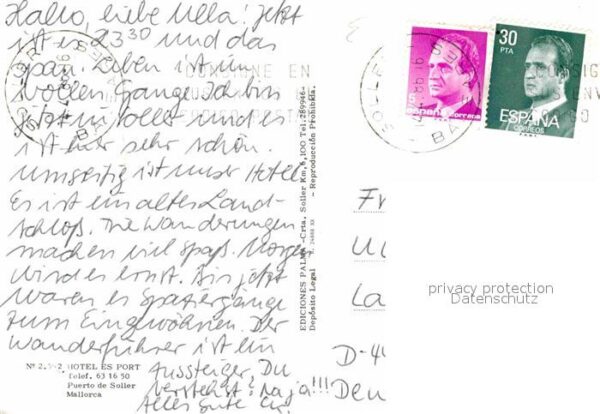 Hallo, liebe Ulla! Jetzt
ist es 23³⁰ und das
span. Leben ist im
vollen Gange. Ich bin
jetzt in Soller und es
ist hier sehr schön.
ist unser Hotel.
Es ist ein altes Land-
schloß. Die Wanderungen
machen viel Spaß. Morgen
wird es ernst. Bis jetzt
waren es Spaziergänge
zum Eingewöhnen. Der
Wanderführer ist ein
Aussteiger, Du
verstehst? Na ja!!!
Alles Gute
Nº 2.
HOTEL ES PORT
Telef. 63 16 50
Puerto de Soller
Mallorca
EDICIONES PALMA -Crta. Soller Km,6,100 Tel.289946-
Depósito Legal
- Reproducción Prohibida.
CONSIGNE EN
SOLLER
BA
5
ESPAÑA
CORREOS
30
PTA
ESPAÑA
CORREOS
Fr
Ul
La
D-4
Deu
privacy protection
Datenschutz